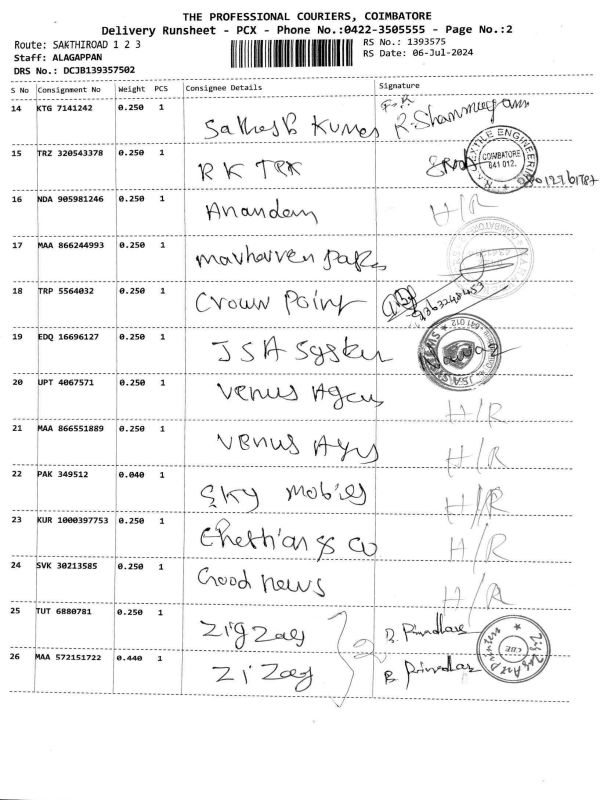 THE PROFESSIONAL COURIERS, COIMBATORE
Delivery Runsheet - PCX - Phone No.:0422-3505555 - Page No.:2
Route: SAKTHIROAD 1 2 3
RS No.: 1393575
Staff: ALAGAPPAN
RS Date: 06-Jul-2024
DRS No.: DCJB139357502
S No Consignment No Weight PCS Consignee Details Signature
14 KTG 7141242 0.250 1 Kumar R. Shanmugam
15 TRZ 320543378 0.250 1 R K TEX
TEXTILE ENGINEERING COIMBATORE 641 012.
16 NDA 905981246 0.250 1 Anandam H/R
17 MAA 866244993 0.250 1
18 TRP 5564032 0.250 1 Crown Point 9363248453
19 EDQ 16696127 0.250 1 JSA System
JSA SYSTEMS 641 012
20 UPT 4067571 0.250 1 Venus H/R
21 MAA 866551889 0.250 1 Venus H/R
22 PAK 349512 0.040 1 Sky Mobiles H/R
23 KUR 1000397753 0.250 1 & Co H/R
24 SVK 30213585 0.250 1 Good News H/R
25 TUT 6880781 0.250 1 Zig Zag 2 B.
CBE
26 MAA 572151722 0.440 1 Zi Zag B.